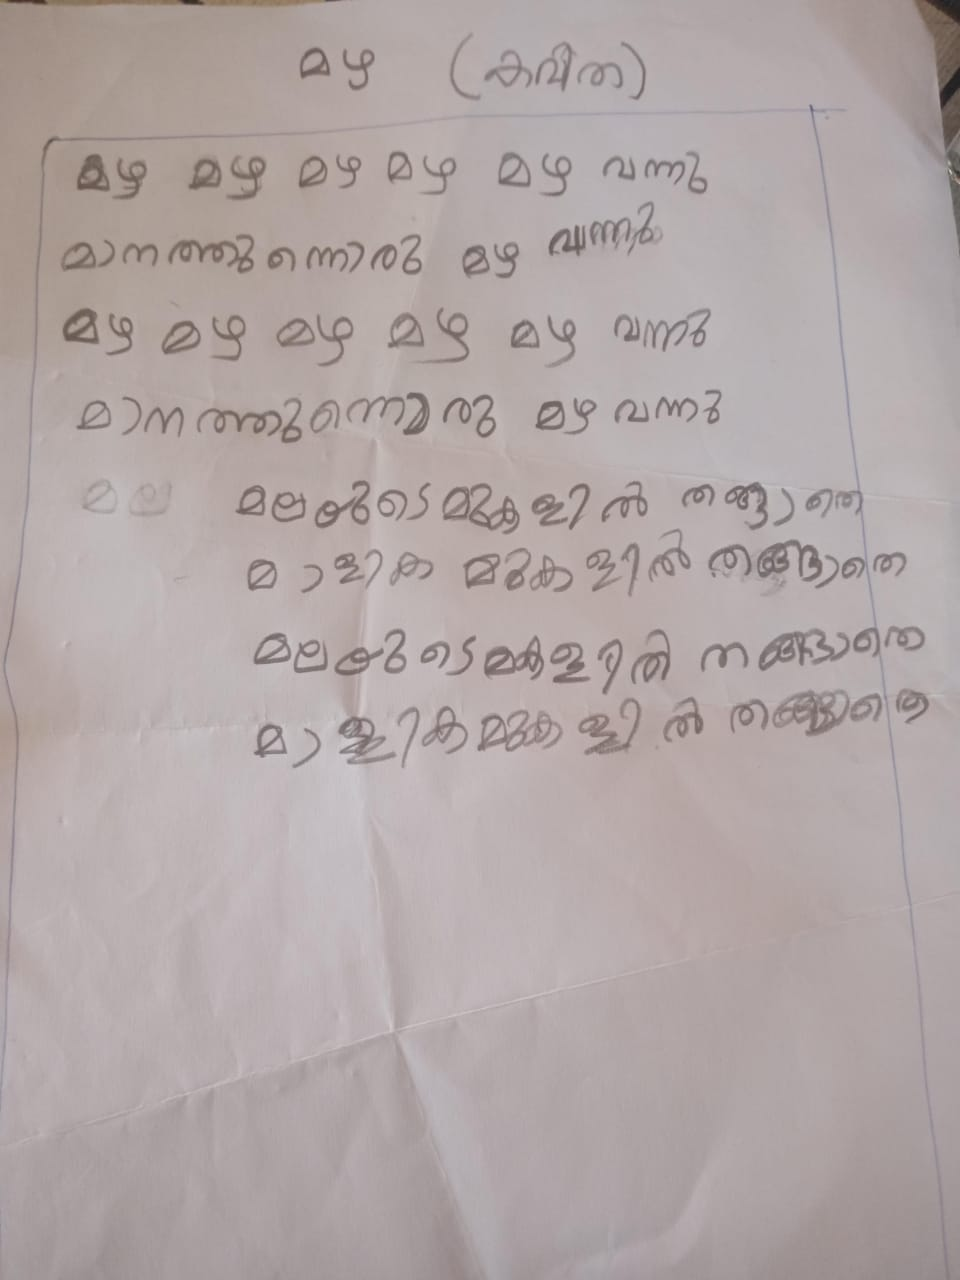 മഴ (കവിത)
മഴ മഴ മഴ മഴ മഴ വന്നു
മാനത്തുന്നൊരു മഴ വന്നു
മഴ മഴ മഴ മഴ മഴ വന്നു
മാനത്തുന്നൊരു മഴ വന്നു
മല മലയുടെ മുകളിൽ തങ്ങാതെ
മാളിക മുകളിൽ തങ്ങാതെ
മലയുടെ തങ്ങാതെ
മാളികമുകളിൽ തങ്ങാതെ